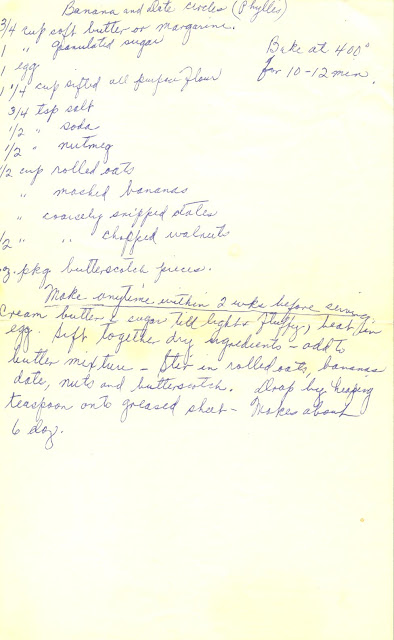 Banana and Date Circles (Phylles)
3/4 cup soft butter or margarine.
1 " granulated sugar
Bake at 400°
1 egg
for 10-12 min.
1 1/4 cup sifted all purpose flour
3/4 tsp salt
1/2 " soda
1/2 " nutmeg
1/2 cup rolled oats
" mashed bananas
" coarsely snipped dates
1/2 " " chopped walnuts
z. pkg butterscotch pieces.
Make anytime within 2 wks before serving.
Cream butter & sugar till light & fluffy, beat in
egg. Sift together dry ingredients - add to
butter mixture - Stir in rolled oats, bananas
date, nuts and butterscotch. Drop by heaping
teaspoon onto greased sheet - Makes about
6 doz.